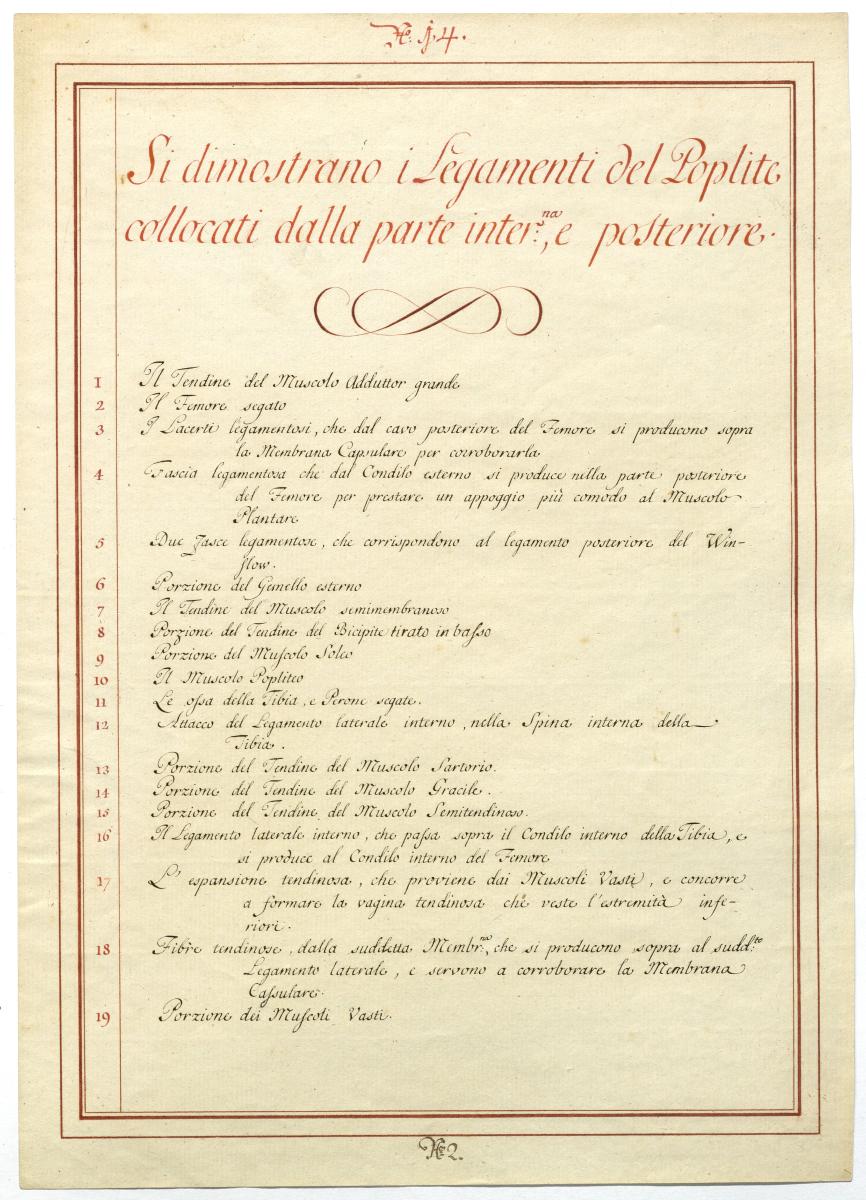 N.º 14.
Si dimostrano i Legamenti del Poplite
collocati dalla parte inter:na, e posteriore.
1 Il Tendine del Muscolo Adduttor grande
2 Il Femore segato
3 I Lacerti legamentosi, che dal cavo posteriore del Femore si producono sopra
la Membrana Capsulare per corroborarla
4 Fascia legamentosa che dal Condilo esterno si produce nella parte posteriore
del Femore per prestare un appoggio più comodo al Muscolo
Plantare
5 Due Fasce legamentose, che corrispondono al legamento posteriore del Win-
slow.
6 Porzione del Gemello esterno
7 Il Tendine del Muscolo semimembranoso
8 Porzione del Tendine del Bicipite tirato in baſso
9 Porzione del Muſcolo Soleo
10 Il Muscolo Popliteo
11 Le ossa della Tibia, e Perone segate.
12 Attacco del Legamento laterale interno, nella Spina interna della
Tibia.
13 Porzione del Tendine del Muscolo Sartorio.
14 Porzione del Tendine del Muscolo Gracile.
15 Porzione del Tendine del Muscolo Semitendinoso.
16 Il Legamento laterale interno, che paſsa sopra il Condilo interno della Tibia, e
si produce al Condilo interno del Femore
17 L'espansione tendinosa, che proviene dai Muscoli Vasti, e concorre
a formare la vagina tendinosa che veste l'estremità infe-
riori.
18 Fibre tendinose, dalla suddetta Membr:na, che si producono sopra al sudd:to
Legamento laterale, e servono a corroborare la Membrana
Caſsulare.
19 Porzione dei Muſcoli Vasti.
N.º 2.